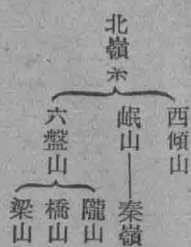 北嶺
西傾山
岷山
秦嶺
六盤山
隴山
橋山
梁山